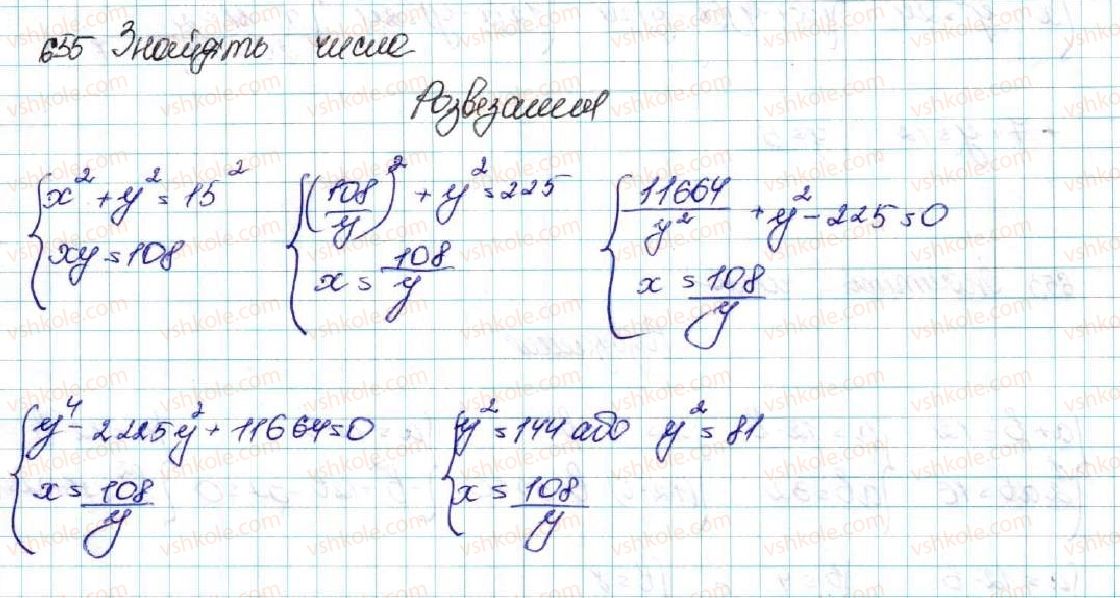 655 Знайдіть числа
Розвезання
{ x² + y² = 15²
xy = 108
{ (108/y)² + y² = 225
x = 108/y
{ 11664/y² + y² - 225 = 0
x = 108/y
{ y⁴ - 2225y² + 11664 = 0
x = 108/y
{ y² = 144 або y² = 81
x = 108/y
vshkole.com